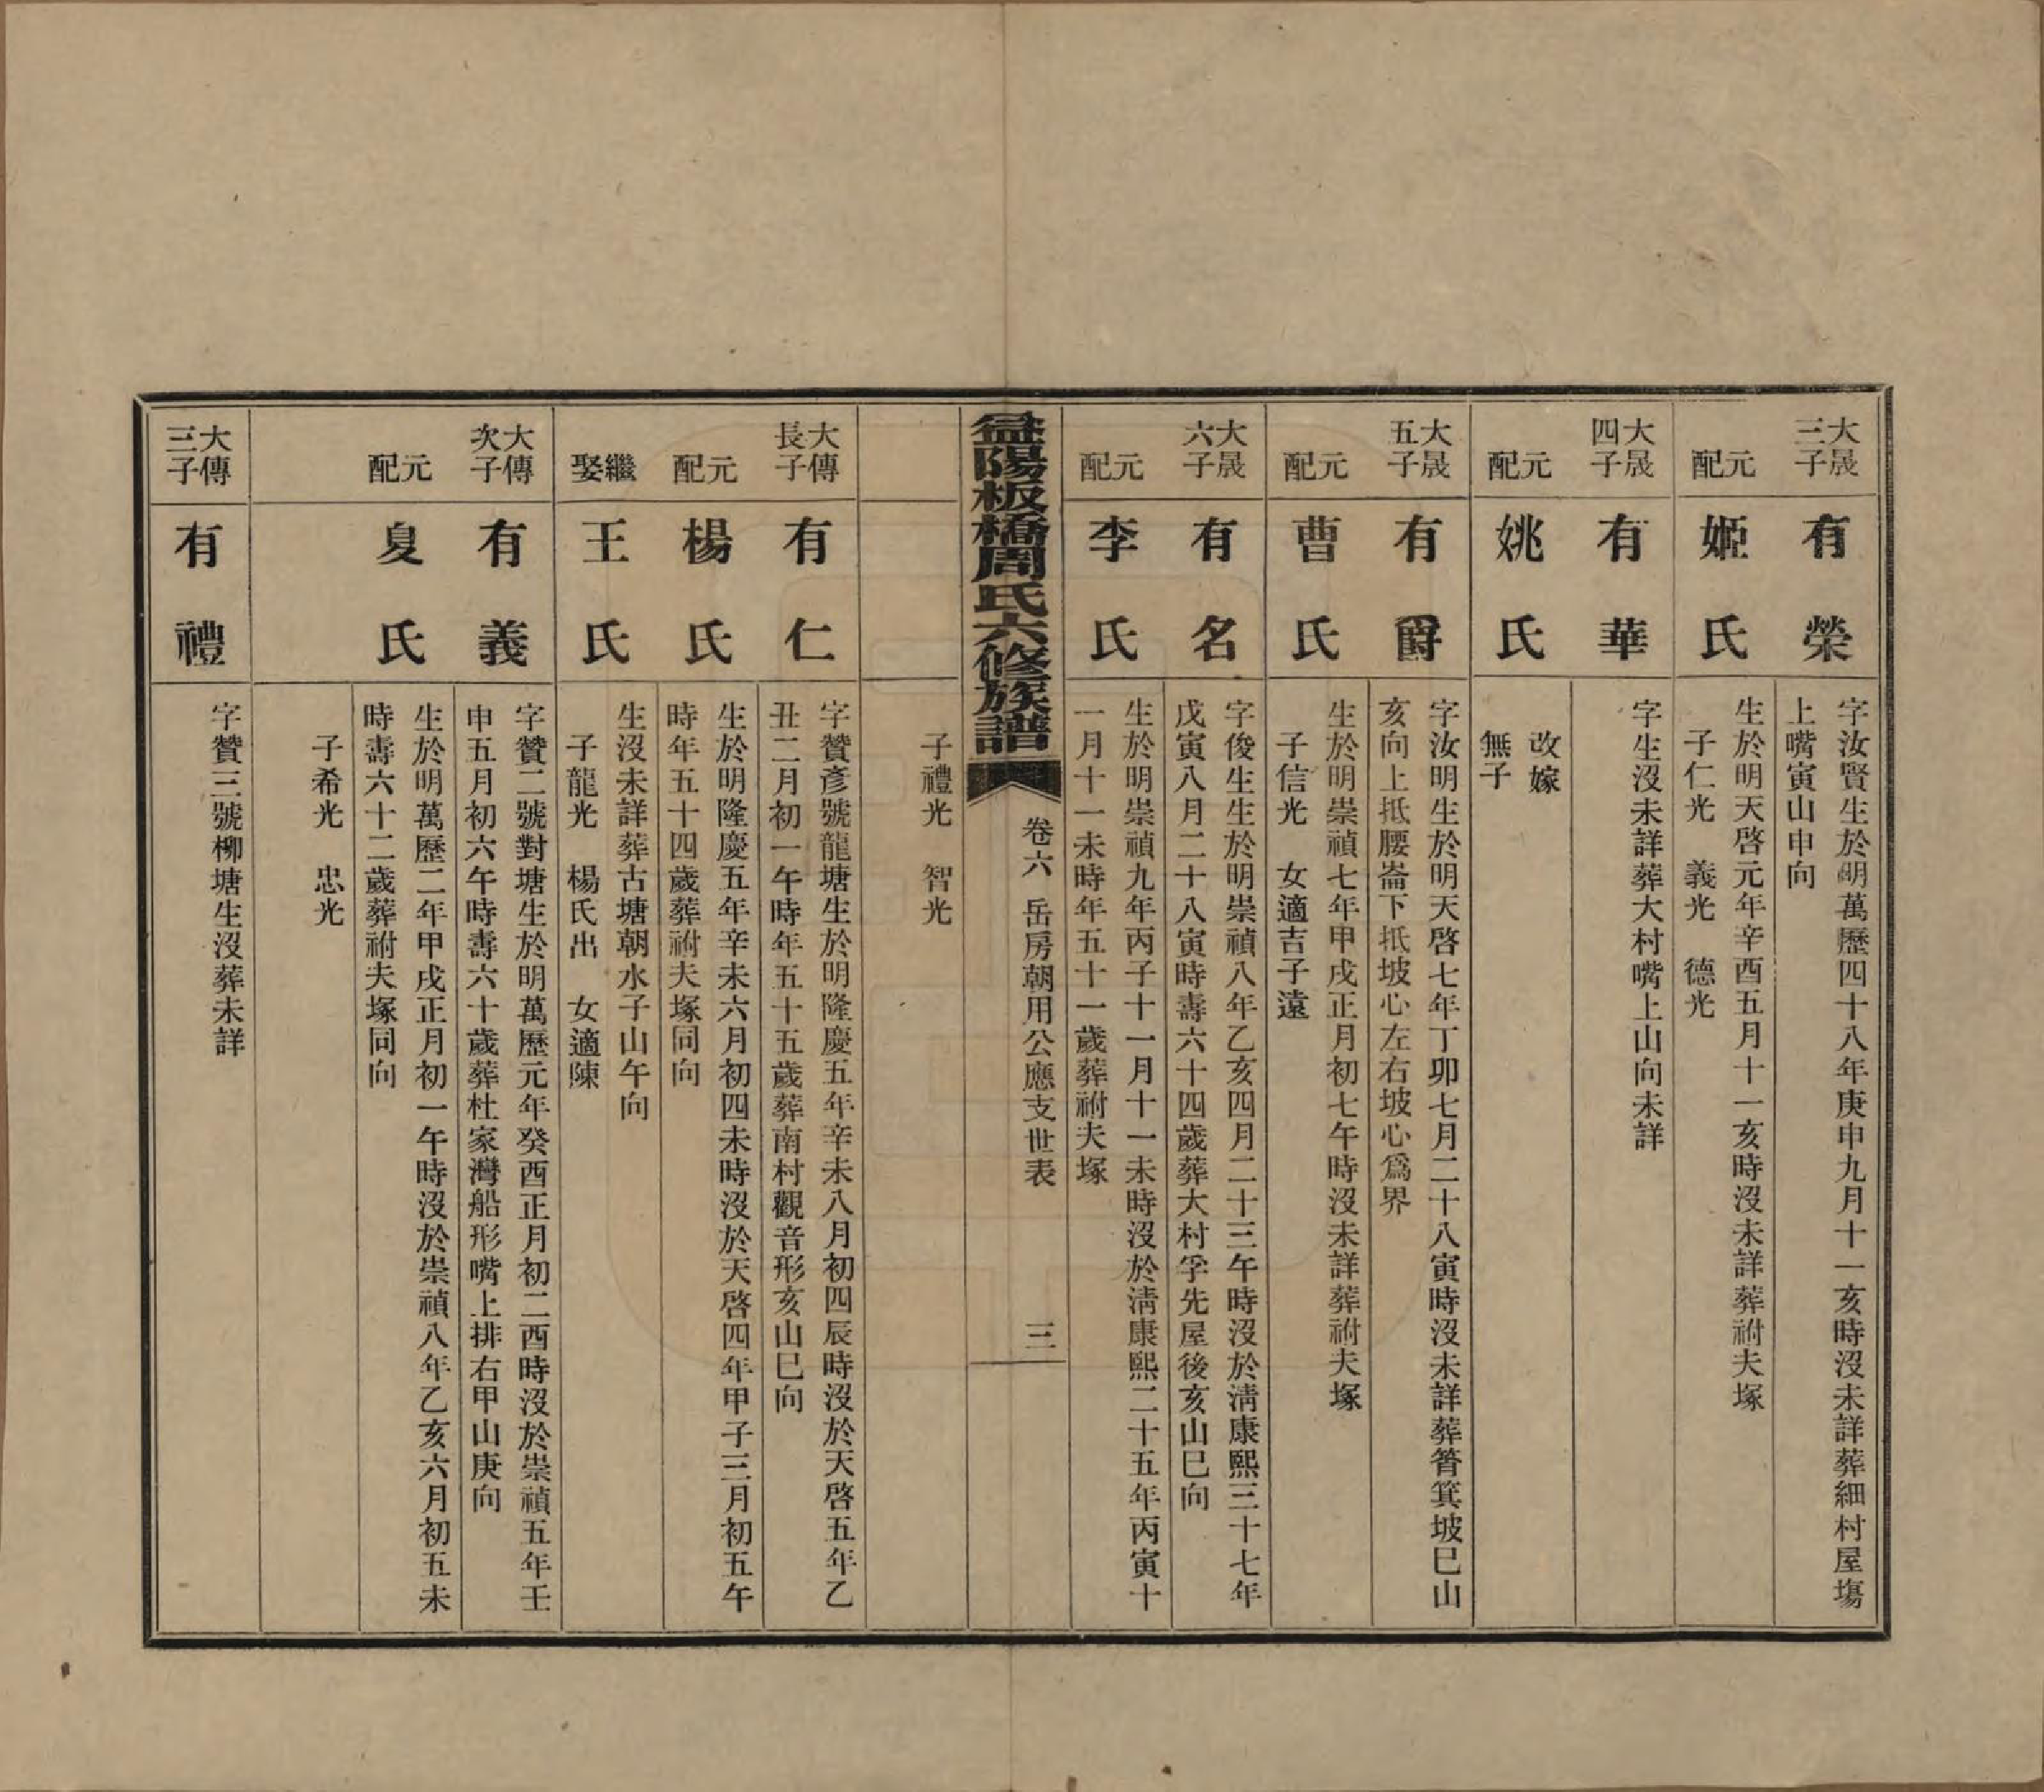 大晟
三子
有榮
字汝賢生於明萬歷四十八年庚申九月十一亥時沒未詳葬細村屋塲
上嘴寅山申向
元配
姬氏
生於明天啓元年辛酉五月十一亥時沒未詳葬祔夫塚
子仁光　義光　德光
大晟
四子
有華
字生沒未詳葬大村嘴上山向未詳
元配
姚氏
改嫁
無子
大晟
五子
有爵
字汝明生於明天啓七年丁卯七月二十八寅時沒未詳葬筲箕坡巳山
亥向上抵腰崙下抵坡心左右坡心爲界
元配
曹氏
生於明崇禎七年甲戌正月初七午時沒未詳葬祔夫塚
子信光　女適吉子遠
大晟
六子
有名
字俊生生於明崇禎八年乙亥四月二十三午時沒於淸康熙三十七年
戊寅八月二十八寅時壽六十四歲葬大村孚先屋後亥山巳向
元配
李氏
生於明崇禎九年丙子十一月十一未時沒於淸康熙二十五年丙寅十
一月十一未時年五十一歲葬祔夫塚
益陽板橋周氏六修族譜
卷六　岳房朝用公應支世表
三
子禮光　智光
大傳
長子
有仁
字贊彥號龍塘生於明隆慶五年辛未八月初四辰時沒於天啓五年乙
丑二月初一午時年五十五歲葬南村觀音形亥山巳向
元配
楊氏
生於明隆慶五年辛未六月初四未時沒於天啓四年甲子三月初五午
時年五十四歲葬祔夫塚同向
繼娶
王氏
生沒未詳葬古塘朝水子山午向
子龍光　楊氏出　女適陳
大傳
次子
有義
字贊二號對塘生於明萬歷元年癸酉正月初二酉時沒於崇禎五年壬
申五月初六午時壽六十歲葬杜家灣船形嘴上排右甲山庚向
元配
夏氏
生於明萬歷二年甲戌正月初一午時沒於崇禎八年乙亥六月初五未
時壽六十二歲葬祔夫塚同向
子希光　忠光
大傳
三子
有禮
字贊三號柳塘生沒葬未詳